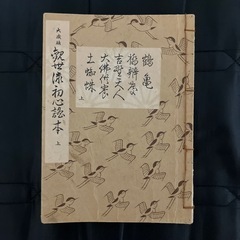 大成版
観世流初心謡本
上
鶴亀
橋弁慶
吉野天人
大仏供養
土蜘蛛
上